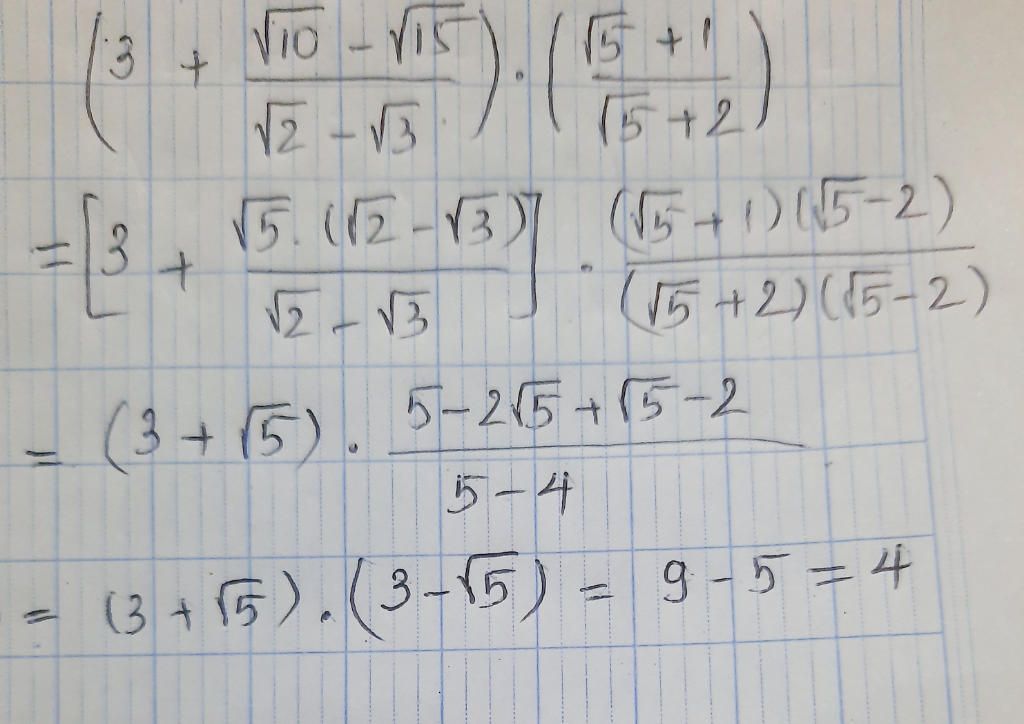 (3 + (√10 − √15)/(√2 − √3)) · ((√5 + 1)/(√5 + 2))
= [3 + (√5 . (√2 − √3))/(√2 − √3)] · ((√5 + 1)(√5 − 2))/((√5 + 2)(√5 − 2))
= (3 + √5) · (5 − 2√5 + √5 − 2)/(5 − 4)
= (3 + √5) · (3 − √5) = 9 − 5 = 4